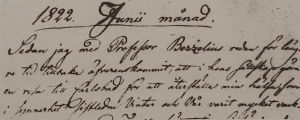 1822. Junii månad.
Sedan jag med Professor Berzelius redan för läng-
re tid tilbaka öfverenskommit, att i hans sällskap
en resa til Carlsbad för att återställa min hälsa, som
i synnerhet sistleden Vinter och Vår varit mycket